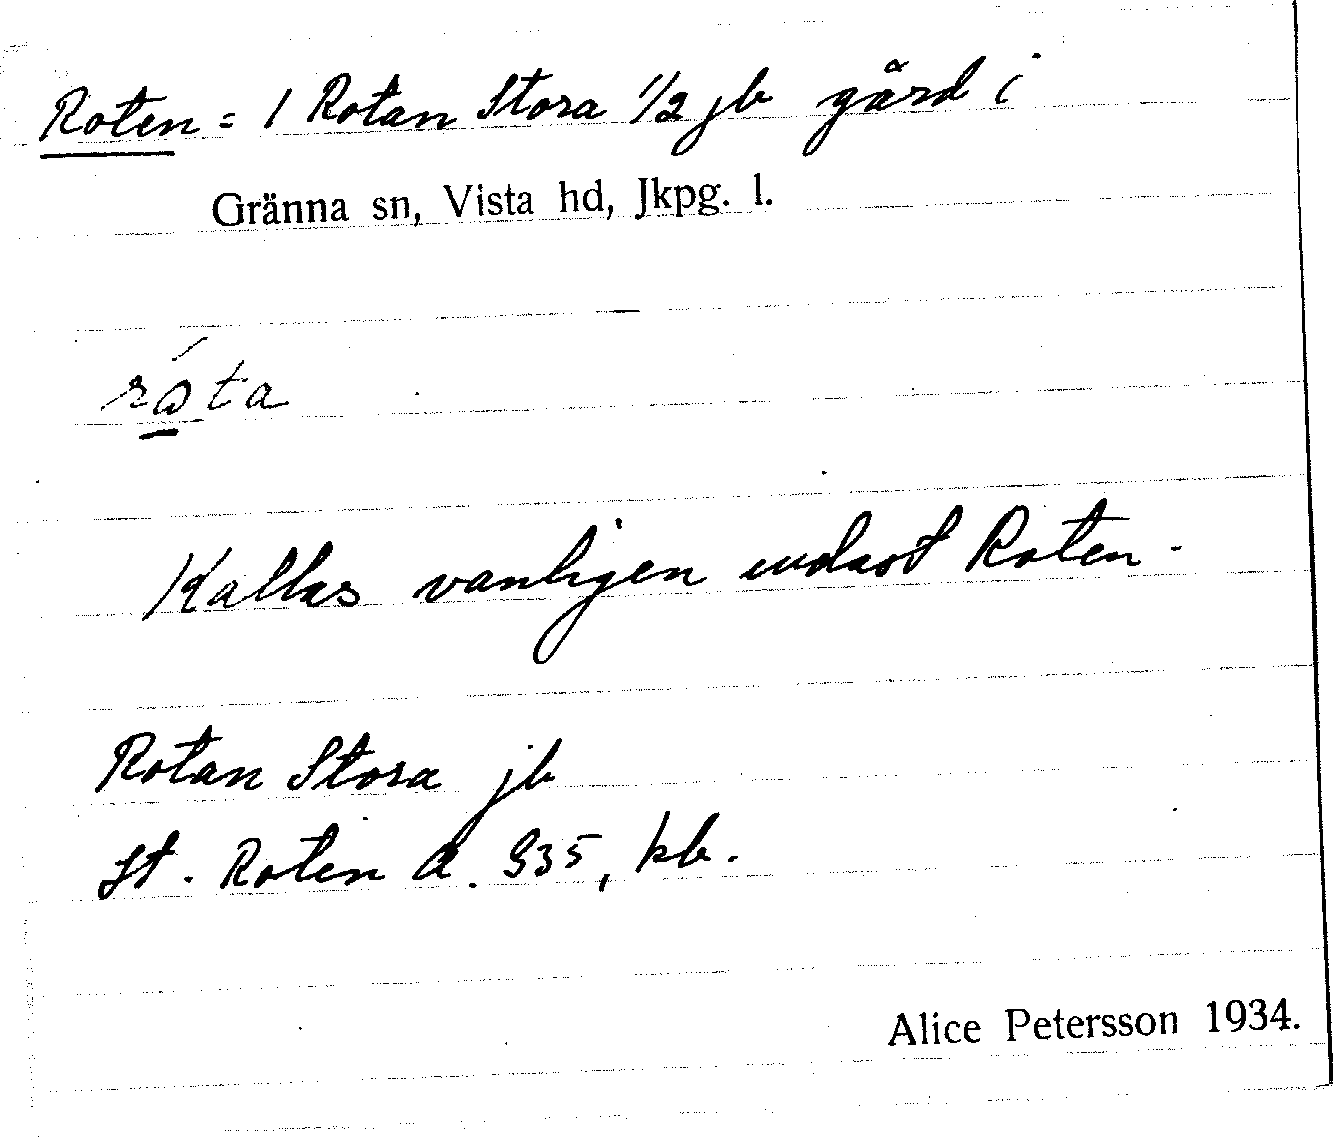 Roten = / Rotan Stora 1/2 jb gård i
Gränna sn, Vista hd, Jkpg. l.
róta
Kallas vanligen endast Roten.
Rotan Stora jb
St. Roten a. 935, kb.
Alice Petersson 1934.